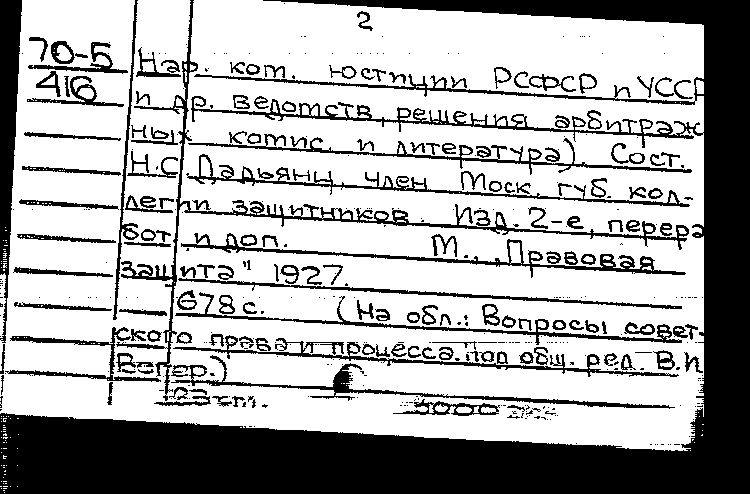 2
70-5
416
Нар. ком. юстиции РСФСР и УССР
и др. ведомств, решения арбитраж
ных комис. и литература). Сост.
Н.С. Дадьянц, член Моск. губ. кол-
легии защитников. Изд. 2-е, перера
бот. и доп. М., „Правовая
защита", 1927.
678 с. (На обл.: Вопросы совет-
ского права и процесса. Под общ. ред. В.И.
Вегер.)
23 см. 5000 экз.